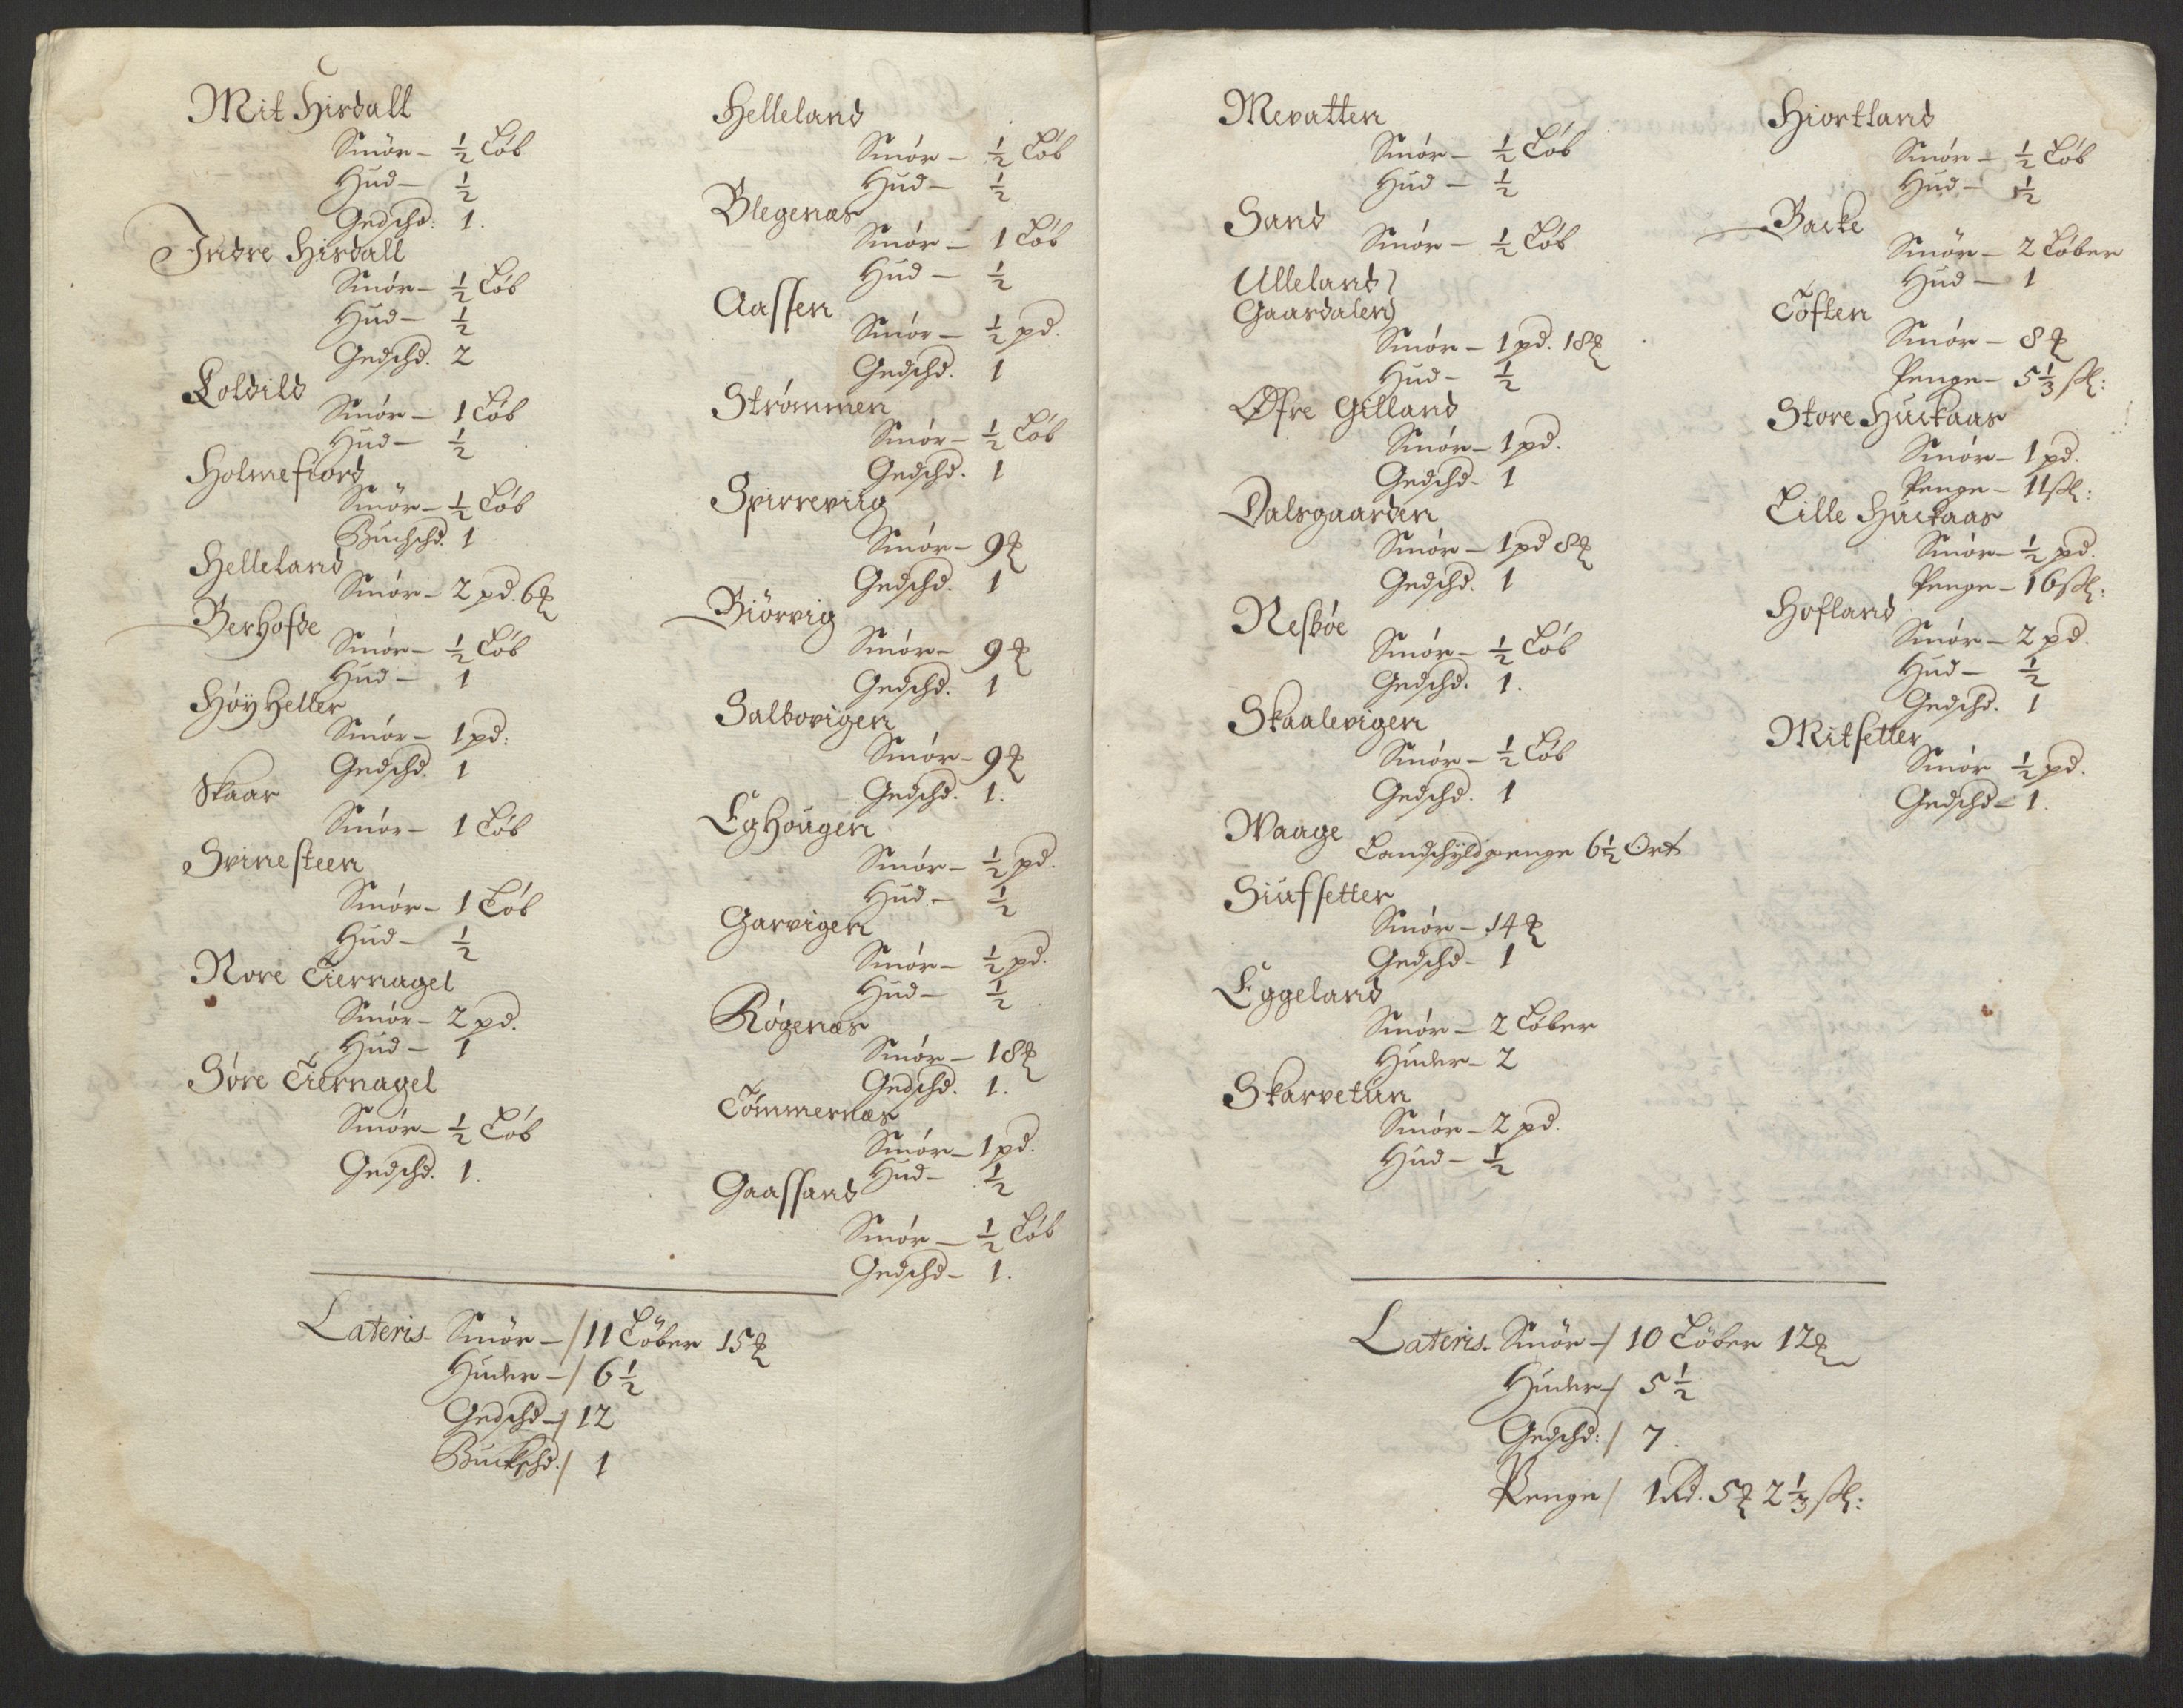 Mit Hisdall
Smör – ½ Löb
Hud – ½
Gedschd: 1.
Indre Hisdall
Smör – ½ Löb
Hud – ½
Gedschd. 2
Loldild
Smör – 1 Löb
Hud – ½
Holmefiord
Smör – ½ Löb
Buchschd. 1
Helleland
Smör – 2 pd. 6 ℔
Berhofde
Smör – ½ Löb
Hud – 1
Höÿheller
Smör – 1 pd:
Gedschd. 1
Skaar
Smör – 1 Löb
Svinesteen
Smör – 1 Löb
Hud – ½
Nore Tiernagel
Smör – 2 pd.
Hud – 1
Söre Tiernagel
Smör – ½ Löb
Gedschd. 1.
Helleland
Smör – ½ Löb
Hud – ½
Blegenæs
Smör – 1 Löb
Hud – ½
Aassen
Smör – ½ pd.
Gedschd. 1
Strömmen
Smör – ½ Löb
Gedschd. 1
Spirreviig
Smör – 9 ℔
Gedschd. 1
Biörvig
Smör – 9 ℔
Gedschd. 1
Salbovigen
Smör – 9 ℔
Gedschd. 1.
Eghougen
Smör – ½ pd.
Hud – ½
Garvigen
Smör – ½ pd.
Hud – ½
Rögenæs
Smör – 18 ℔
Gedschd. 1.
Tömmernæs
Smör – 1 pd.
Hud – ½
Gaassand
Smör – ½ Löb
Gedschd – 1.
Lateris Smör – / 11 Löber 15 ℔
Huder – / 6½
Gedschd – / 12
Buckschd. / 1
Mevatten
Smör – ½ Löb
Hud – ½
Sand
Smör – ½ Löb
Ulleland)
Gaardalen)
Smör – 1 pd. 18 ℔
Hud – ½
Øfre Gilland
Smör – 1 pd.
Gedschd – 1
Dalsgaarden
Smör – 1 pd 8 ℔
Gedschd. 1
Nesböe
Smör – ½ Löb
Gedschd. 1.
Skaalevigen
Smör – ½ Löb
Gedschd. 1
Waage
Landschÿldpenge 6½ Ort
Siufsetter
Smör – 14 ℔
Gedschd – 1
Eggeland
Smör – 2 Löber
Huder – 2
Skarvetun
Smör – 2 pd.
Hud – ½
Hiortland
Smör – ½ Löb
Hud – ½
Backe
Smör – 2 Löber
Hud – 1
Töften
Smör – 8 ℔
Penge – 5⅓ sk:
Store Huckaas
Smör – 1 pd.
Penge – 11 sk:
Lille Huckaas
Smör – ½ pd.
Penge – 16 sk:
Hofland
Smör – 2 pd.
Hud – ½
Gedschd. 1
Mitsetter
Smör ½ pd.
Gedschd – 1.
Lateris. Smör – / 10 Löber 12 ℔
Huder – / 5½
Gedschd: / 7.
Penge / 1 Rd. 5 ℔ 2⅓ sk: